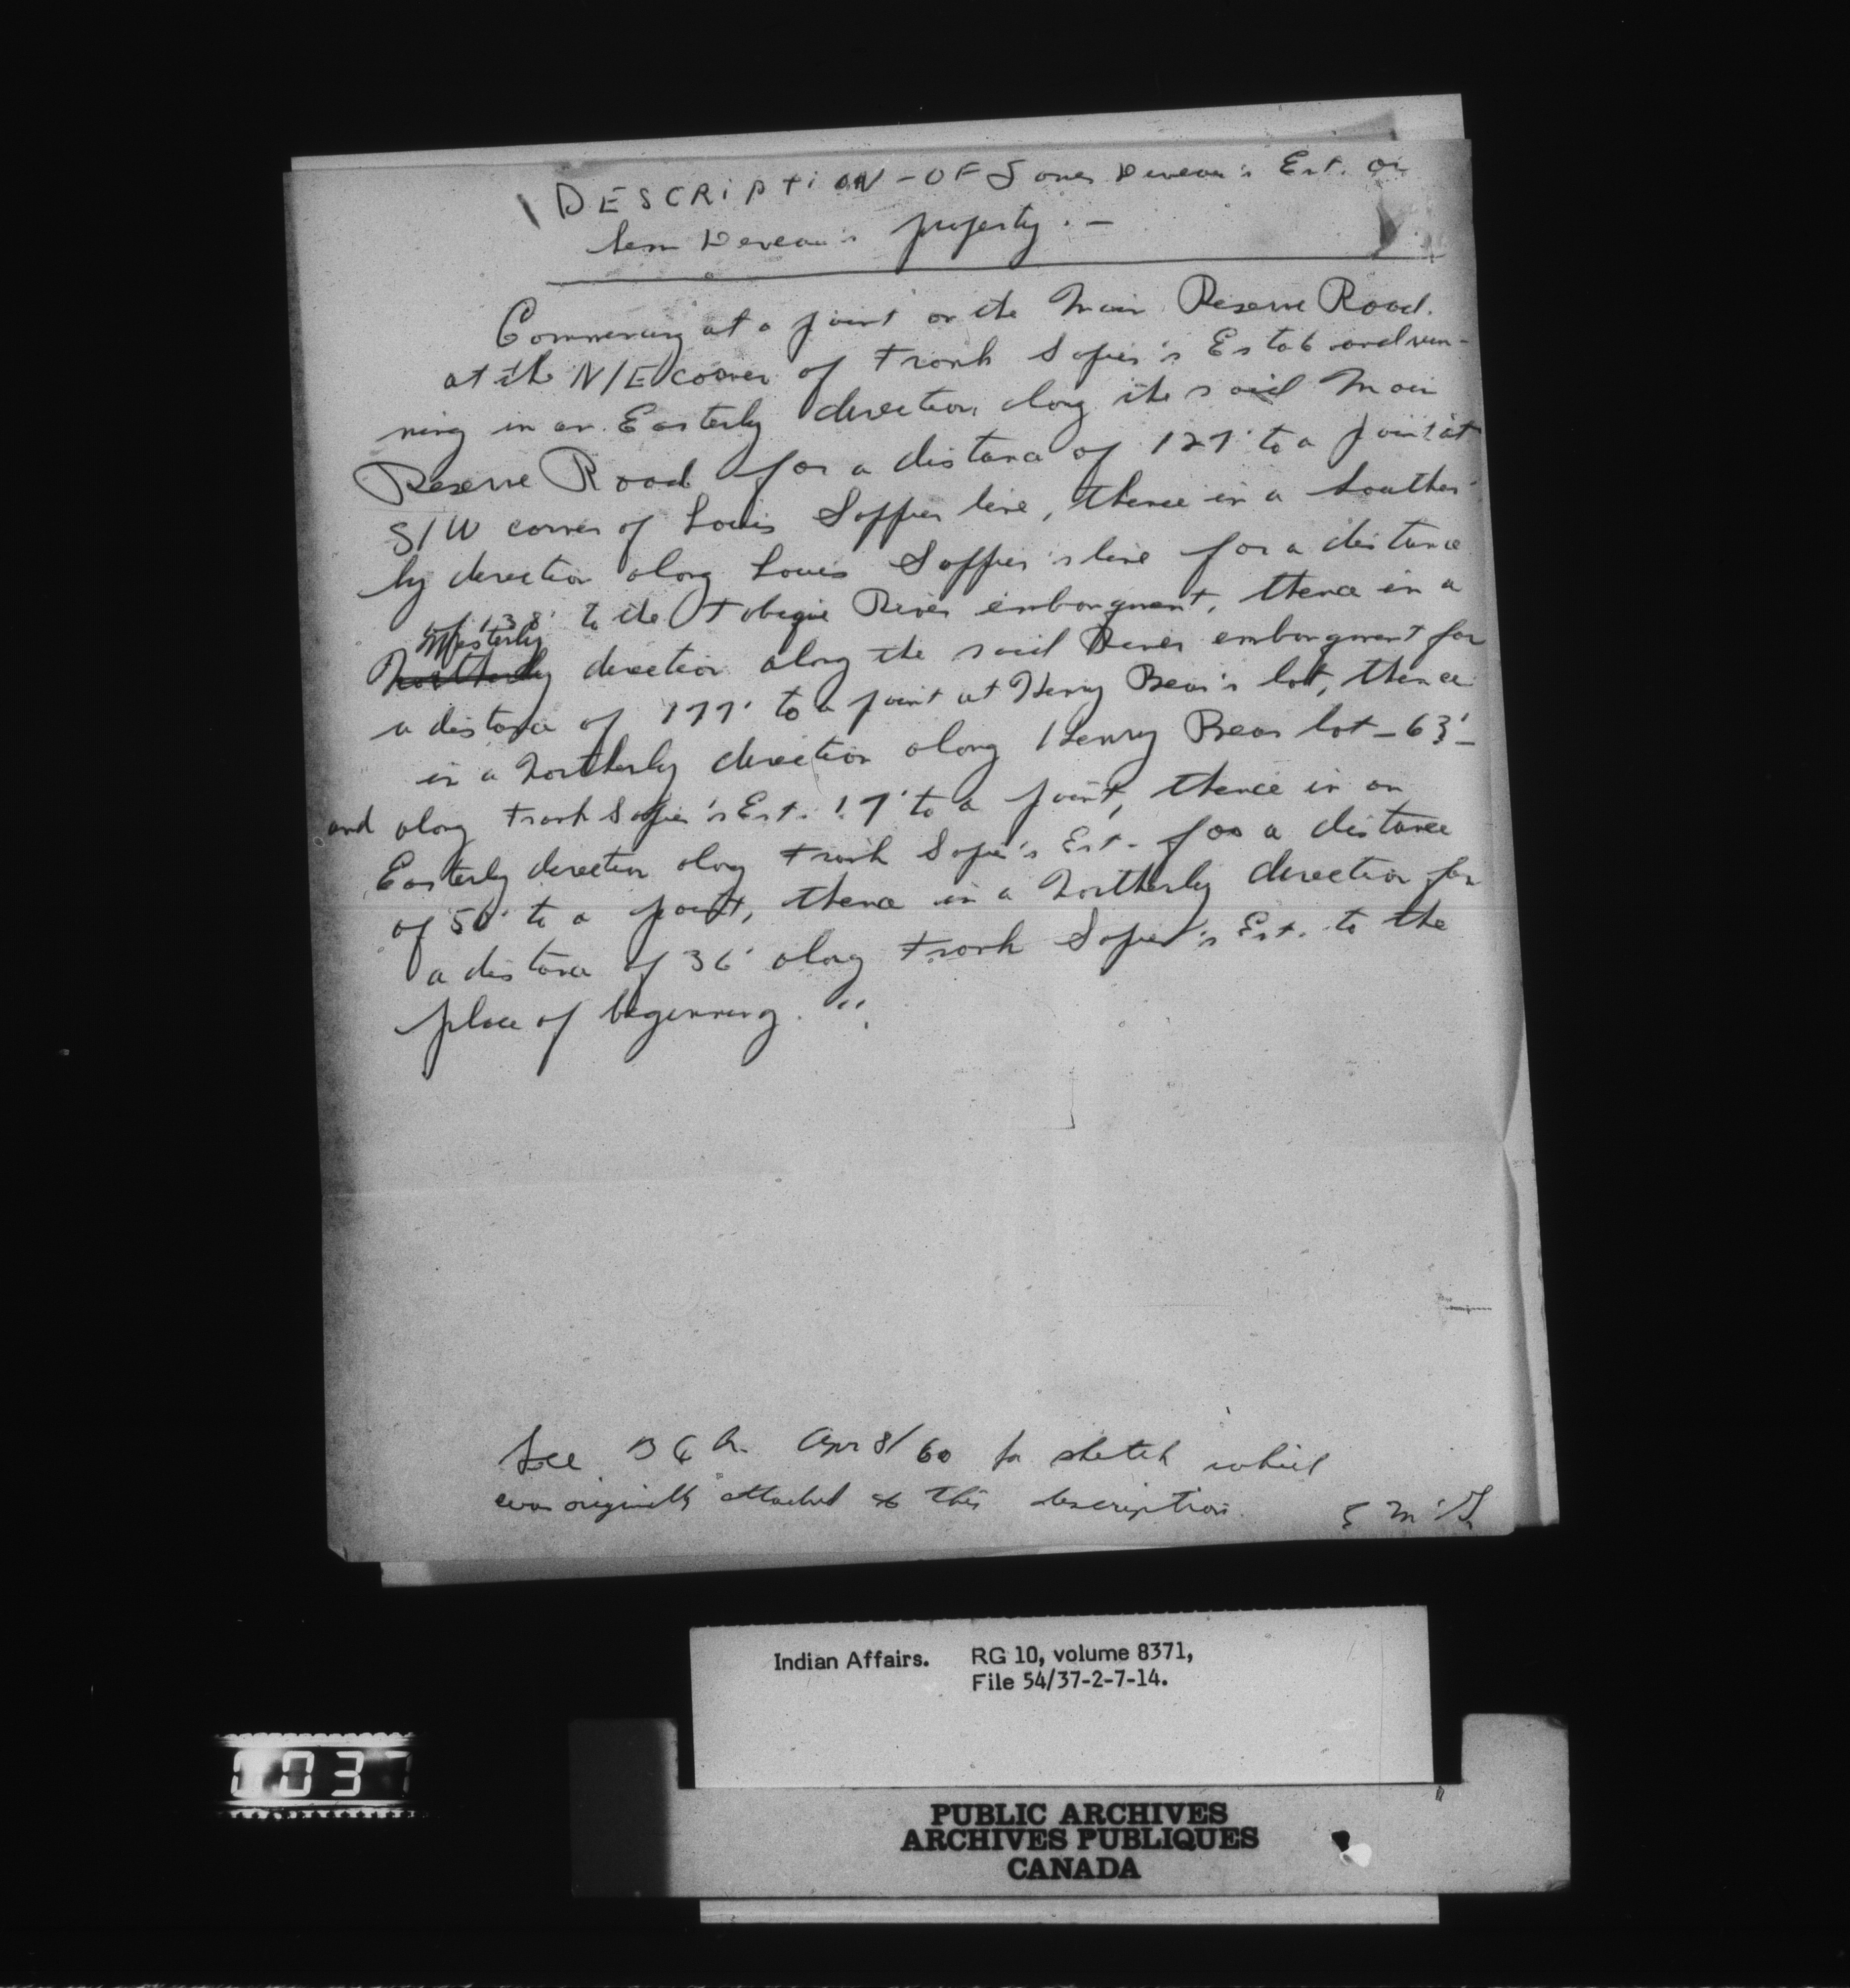 DESCRIPTION - OF Jones Deveau's Est. or
Deveau's property. -
Commencing at a point on the Main Reserve Road.
at the N/E corner of Frank Sopier's Estate and run-
ning in an Easterly direction, along the said Main
Reserve Road for a distance of 127' to a point at
S/W corner of Louis Soppier line, thence in a Souther-
ly direction along Louis Soppier's line for a distance
of 138' to the Tobique River embangment, thence in a
Westerly
Northerly direction along the said River embangment for
a distance of 177' to a point at Henry Bear's lot, thence
in a Northerly direction along Henry Bear lot - 63' -
and along Frank Sopier's Est. 17' to a point, thence in an
Easterly direction along Frank Sopier's Est. for a distance
of 50' to a point, thence in a Northerly direction for
a distance of 36' along Frank Sopier's Est. to the
place of beginning. "
See Apr 8/60 for sketch which
was originally attached to this description.
Indian Affairs. RG 10, volume 8371,
File 54/37-2-7-14.
0037
PUBLIC ARCHIVES
ARCHIVES PUBLIQUES
CANADA